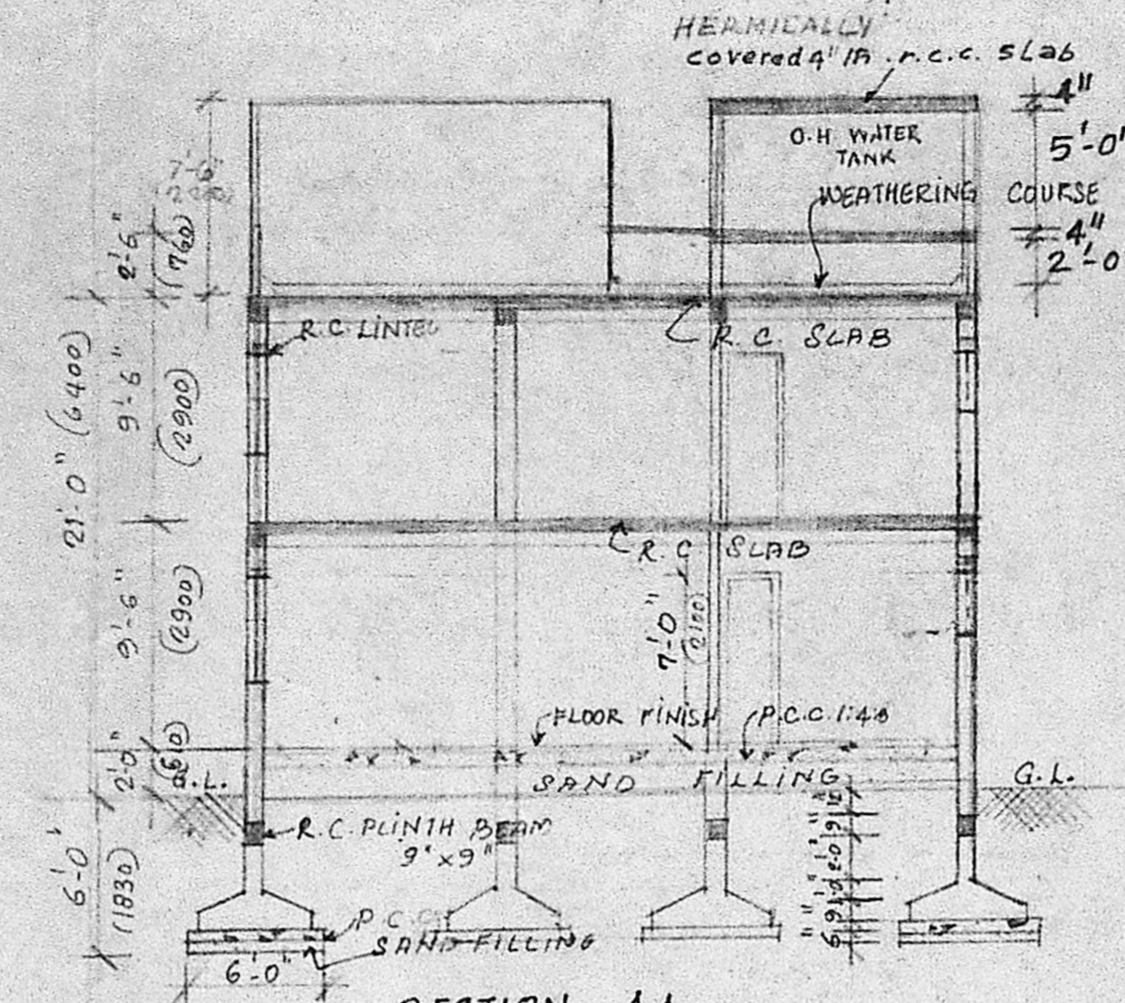 HERMICALLY
covered 4" TH .r.c.c. SLab
4"
O.H WATER
TANK
5'-0"
7'-6"
WEATHERING COURSE
2'-6"
(760)
4"
2'-0
R.C LINTEL
R.C. SLAB
21'-0" (6400)
9'-6"
(2900)
R.C SLAB
9'-6"
(2900)
7'-0"
(2100)
FLOOR FINISH
P.C.C. 1:4:8
2'-0"
(610)
SAND FILLING
G.L.
G.L.
R.C. PLINTH BEAM
9" x 9"
6'-0'
(1830)
P.C.C
SAND FILLING
6'-0"
SECTION